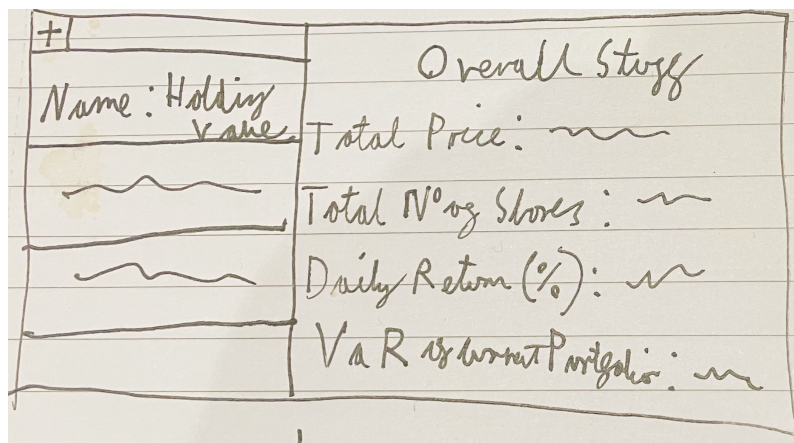 +
Name: Holding
Value
Overall Stuff
Total Price:
Total No of Shares:
Daily Return (%):
VaR of current Portfolio: